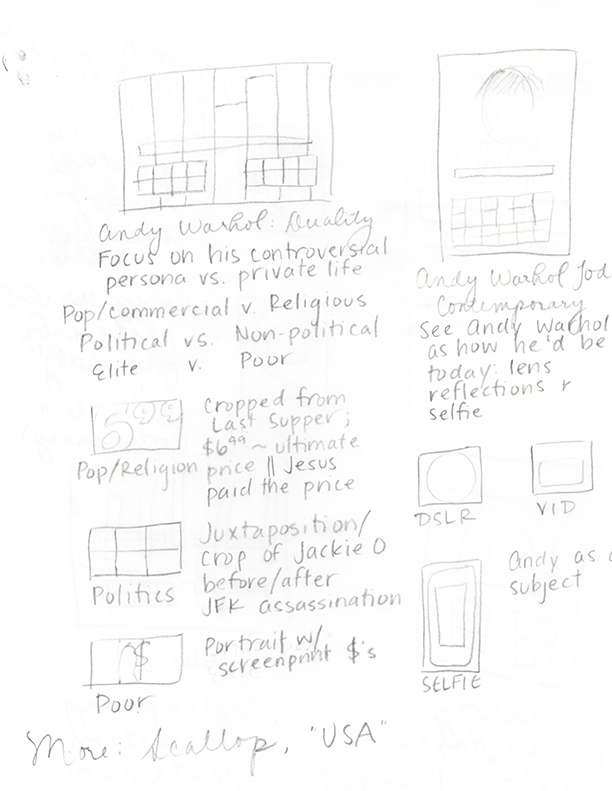 Andy Warhol: Duality
Focus on his controversial
persona vs. private life
Pop/Commercial v. Religious
Political vs. Non-political
Elite v. Poor
6 99
Pop/Religion
Cropped from
Last Supper;
$6.99 ~ ultimate
price || Jesus
paid the price
Politics
Juxtaposition/
crop of Jackie O
before/after
JFK assassination
$
Poor
Portrait w/
screenprint $'s
More: Scallop, "USA"
Andy Warhol Tod
Contemporary
See Andy Warhol
as how he'd be
today: lens
reflections &
selfie
DSLR
VID
SELFIE
Andy as
subject